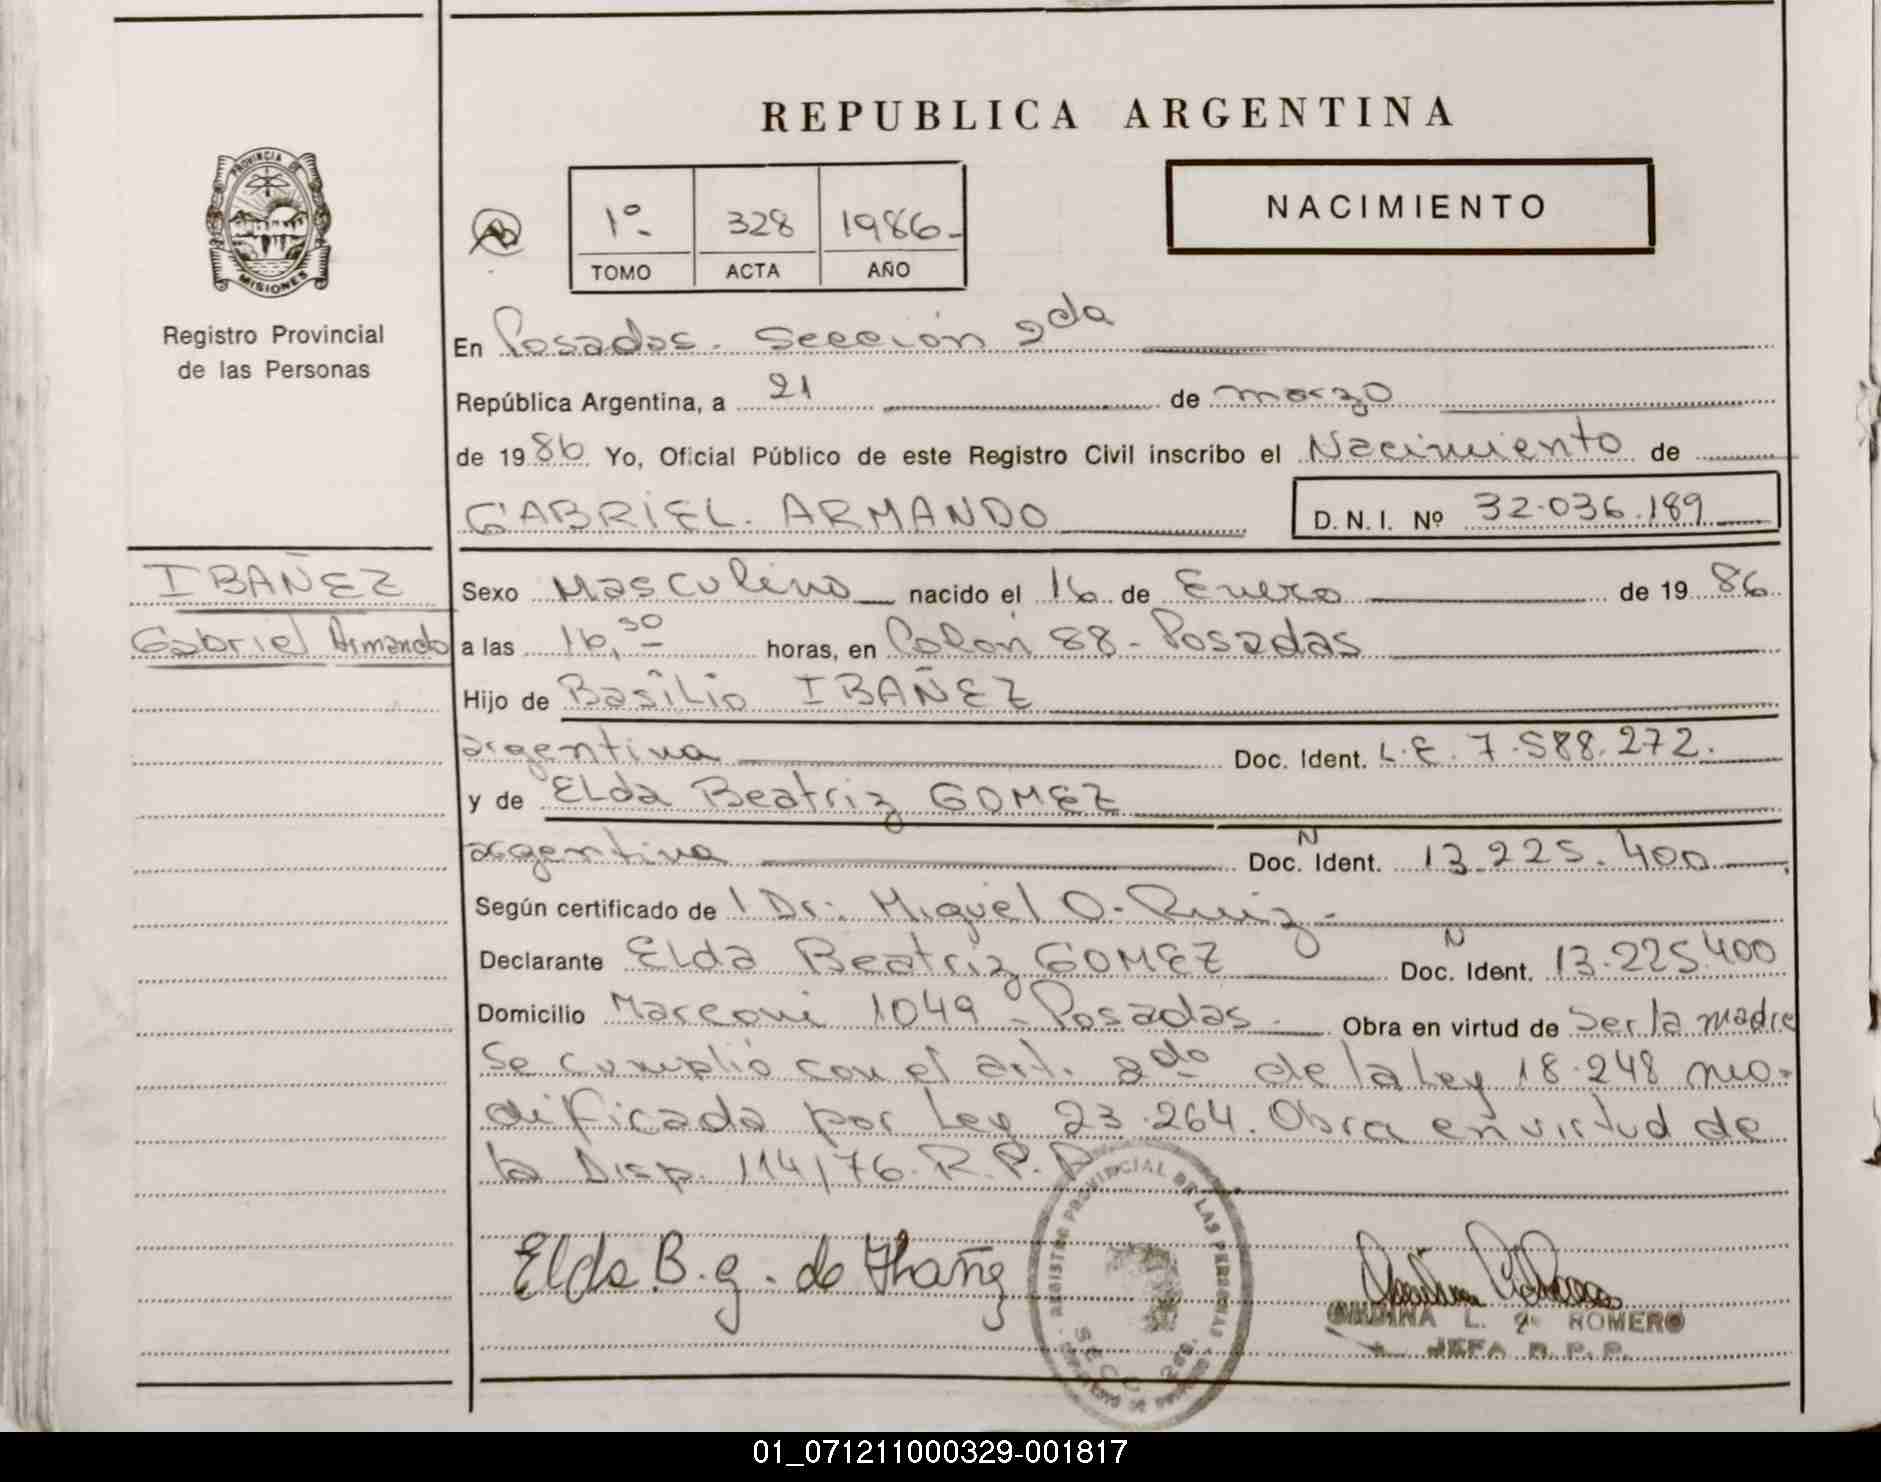 REPUBLICA ARGENTINA
PROVINCIA DE
MISIONES
Registro Provincial
de las Personas
1º-
328
1986-
TOMO
ACTA
AÑO
NACIMIENTO
En Posadas. Sección 2da
República Argentina, a 21 de marzo
de 1986. Yo, Oficial Público de este Registro Civil inscribo el Nacimiento de
GABRIEL. ARMANDO
D.N.I. Nº 32.036.189
IBAÑEZ
Gabriel Armando
Sexo Masculino nacido el 16 de Enero de 1986.
a las 16,30 horas, en Colón 88 - Posadas
Hijo de Basilio IBAÑEZ
argentina Doc. Ident. L.E. 7.588.272.
y de Elda Beatriz GOMEZ
argentina Doc. N Ident. 13.225.400
Según certificado de l Dr. Miguel O. Ruiz -
Declarante Elda Beatriz GOMEZ Doc. N Ident. 13.225.400
Domicilio Marconi 1049 - Posadas - Obra en virtud de Ser la madre
Se cumplió con el art. 2do de la Ley 18.248 mo-
dificada por Ley 23.264. Obra en virtud de
la Disp. 114/76. R.P.P
Elda B. g. de Ibañez
REGISTRO PROVINCIAL DE LAS PERSONAS
SECC. 2da.
L. G. ROMERO
JEFA R.P.P.
01_071211000329-001817